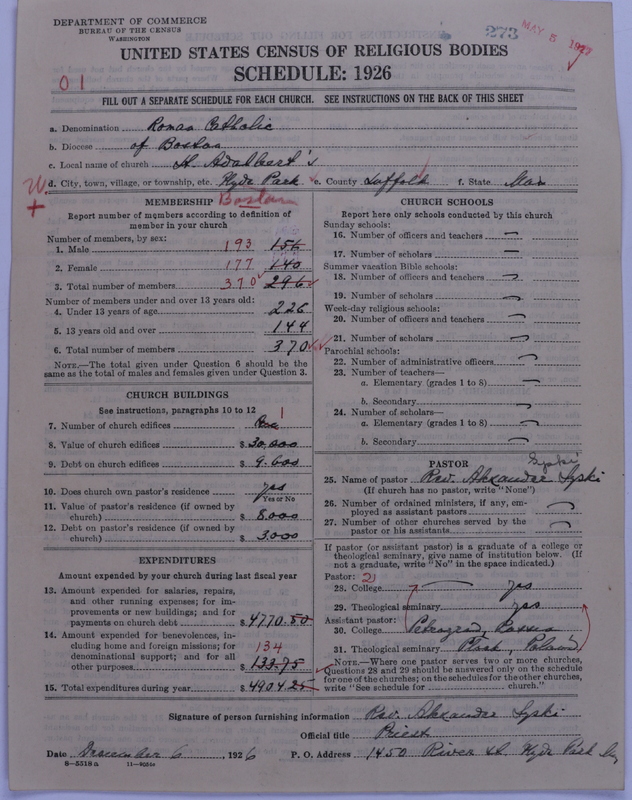 DEPARTMENT OF COMMERCE
BUREAU OF THE CENSUS
WASHINGTON
273
MAY 5 1927
UNITED STATES CENSUS OF RELIGIOUS BODIES
SCHEDULE: 1926
01
FILL OUT A SEPARATE SCHEDULE FOR EACH CHURCH. SEE INSTRUCTIONS ON THE BACK OF THIS SHEET
a. Denomination Roman Catholic
b. Diocese of Boston
c. Local name of church St. Adalbert's
d. City, town, village, or township, etc. Hyde Park e. County Suffolk f. State Mass
Boston
MEMBERSHIP
Report number of members according to definition of member in your church
Number of members, by sex:
1. Male 193 156
2. Female 177 140
3. Total number of members 370 296
Number of members under and over 13 years old:
4. Under 13 years of age 226
5. 13 years old and over 144
6. Total number of members 370
NOTE.—The total given under Question 6 should be the same as the total of males and females given under Question 3.
CHURCH BUILDINGS
See instructions, paragraphs 10 to 12
7. Number of church edifices One 1
8. Value of church edifices $ 30,000
9. Debt on church edifices $ 9,600
10. Does church own pastor's residence yes
Yes or No
11. Value of pastor's residence (if owned by church) $ 8,000
12. Debt on pastor's residence (if owned by church) $ 3,000
EXPENDITURES
Amount expended by your church during last fiscal year
13. Amount expended for salaries, repairs, and other running expenses; for improvements or new buildings; and for payments on church debt $ 4770.50
14. Amount expended for benevolences, including home and foreign missions; for denominational support; and for all other purposes 134 $ 133.75
15. Total expenditures during year $ 4904.25
CHURCH SCHOOLS
Report here only schools conducted by this church
Sunday schools:
16. Number of officers and teachers —
17. Number of scholars —
Summer vacation Bible schools:
18. Number of officers and teachers —
19. Number of scholars —
Week-day religious schools:
20. Number of officers and teachers —
21. Number of scholars —
Parochial schools:
22. Number of administrative officers —
23. Number of teachers—
a. Elementary (grades 1 to 8) —
b. Secondary —
24. Number of scholars—
a. Elementary (grades 1 to 8) —
b. Secondary —
PASTOR
Syski
25. Name of pastor Rev. Alexander Syski
(If church has no pastor, write "None")
26. Number of ordained ministers, if any, employed as assistant pastors —
27. Number of other churches served by the pastor or his assistants —
If pastor (or assistant pastor) is a graduate of a college or theological seminary, give name of institution below. (If not a graduate, write "No" in the space indicated.)
Pastor: 21
28. College — yes
29. Theological seminary yes
Assistant pastor:
30. College Petrograd, Russia
31. Theological seminary Plock, Poland
NOTE.—Where one pastor serves two or more churches, Questions 28 and 29 should be answered only on the schedule for one of the churches; on the schedules for the other churches, write "See schedule for church."
Signature of person furnishing information Rev. Alexander Syski
Official title Priest
Date December 6, 1926 P. O. Address 1450 River St. Hyde Park
8—5518a